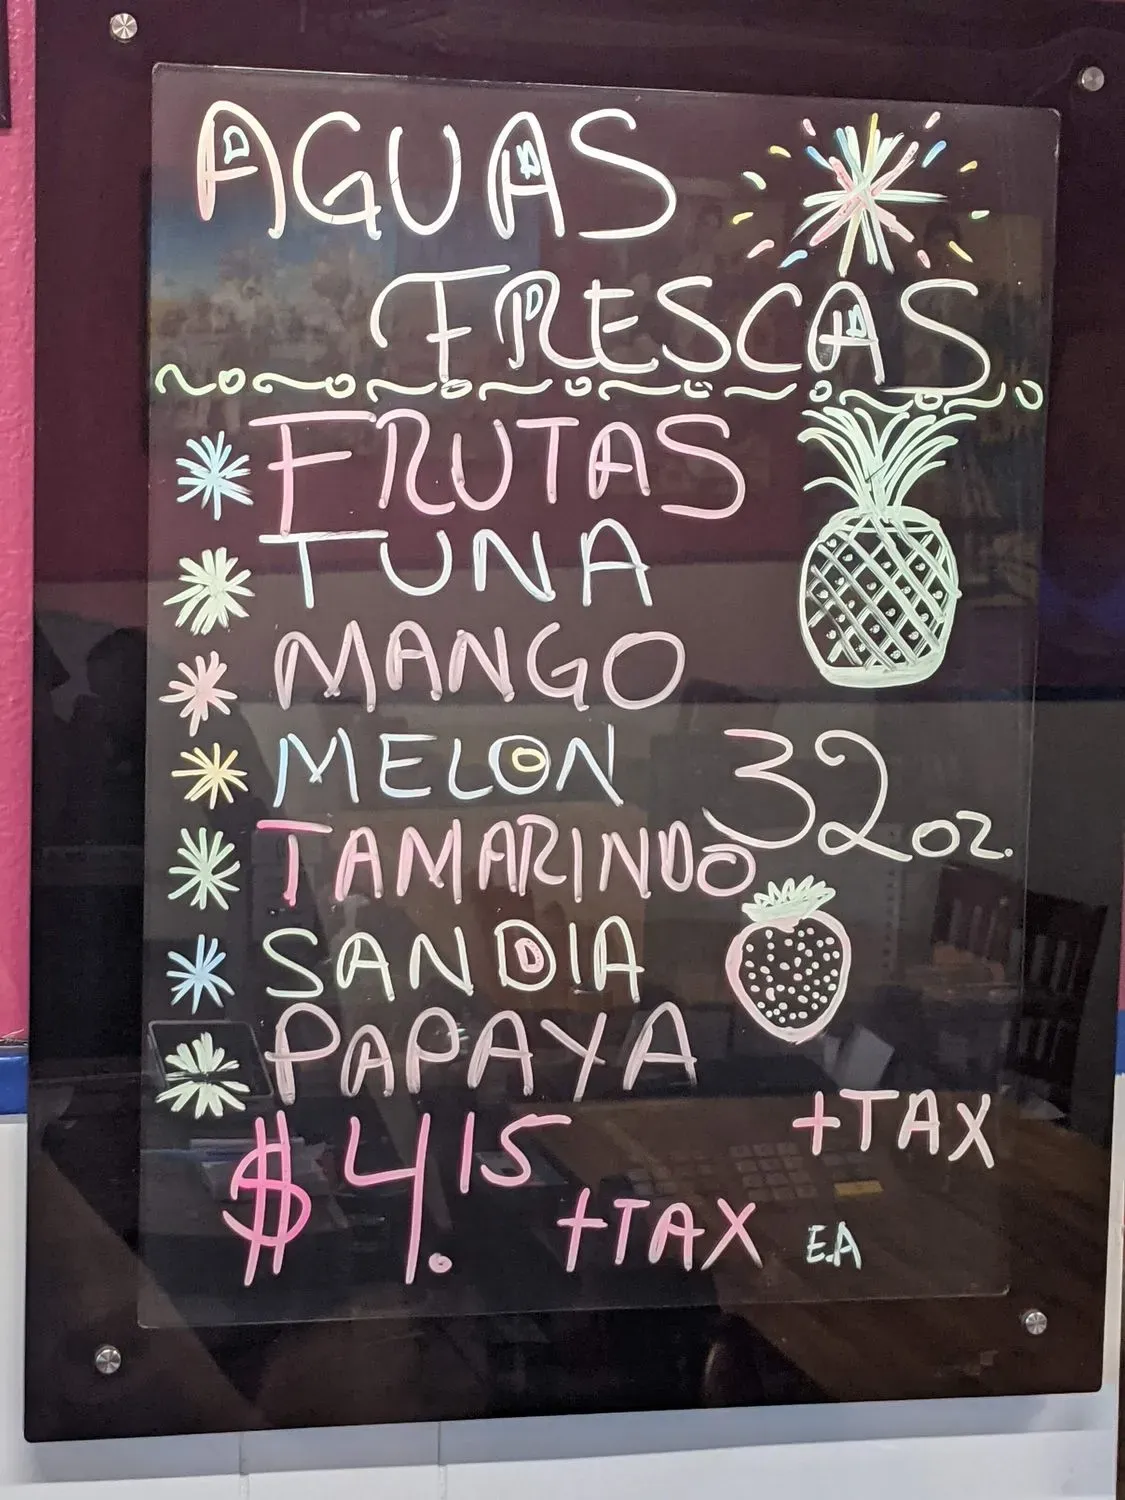 AGUAS
FRESCAS
FRUTAS
TUNA
MANGO
MELON
32 oz.
TAMARINDO
SANDIA
PAPAYA
+TAX
$4.15
+TAX E.A